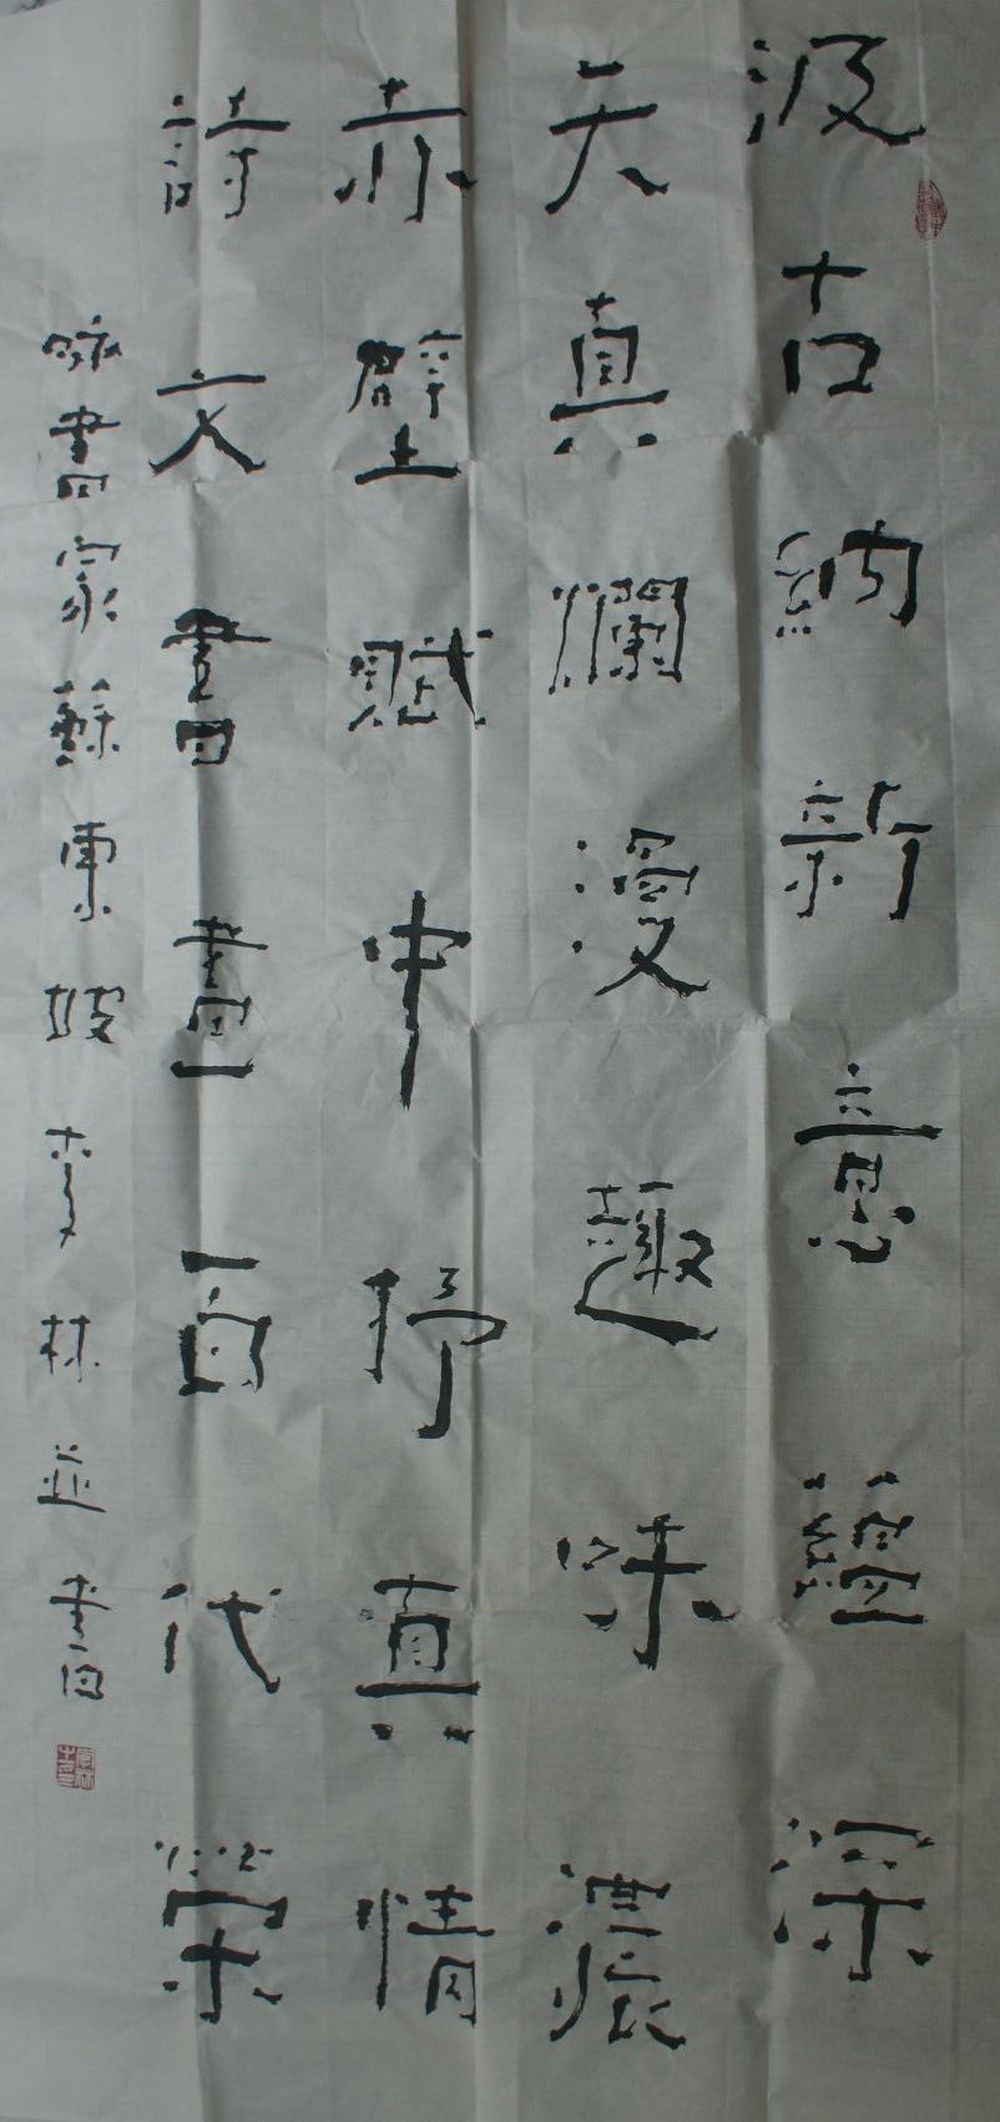 汲古納新意蘊深
天真爛漫趣味濃
赤壁賦中抒真情
詩文書畫百代榮
詠書家蘇東坡李林並書